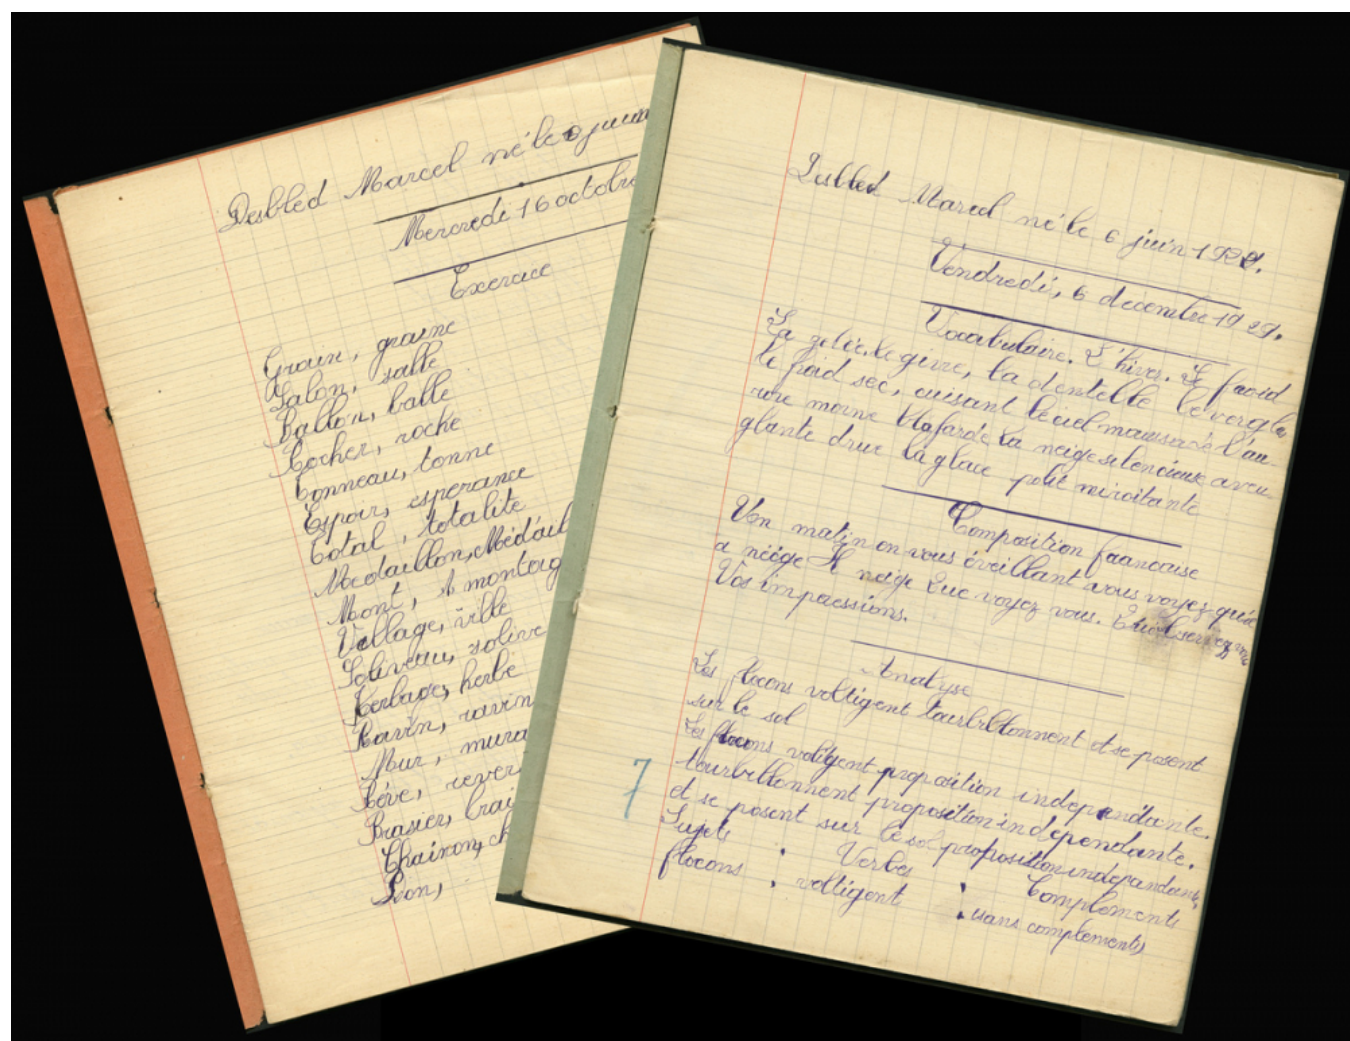 Desbled Marcel né le 6 juin
Mercredi 16 octobre
Exercice
Grain, graine
Salon, salle
Ballon, balle
Rocher, roche
Tonneau, tonne
Espoir, esperance
Total, totalite
Medaillon, Médail
Mont, montag
Village, ville
Soliveau, solive
Herbage, herbe
Ravin, ravin
Mur, mura
Rêve, rever
Brasier, brai
Chainon, ch
Son,
Desbled Marcel né le 6 juin 192
Vendredi, 6 decembre 1929.
Vocabulaire. L'hiver. Le froid
La gelée, le givre, la dentelle le vergla
le froid sec, cuisant le ciel mausade l'au-
rore morne blafarde la neige silencieuse aveu
glante drue la glace polit miroitante
Composition francaise
Un matin en vous éveillant vous voyez qu'il
a néige Il neige Que voyez vous.
Vos impressions.
Analyse
Les flocons voltigent tourbillonnent et se posent
sur le sol
Les flocons voltigent proposition independante.
tourbillonnent proposition independante.
et se posent sur le sol proposition independante,
Sujets : Verbes : Complements
flocons : voltigent : sans complements
7